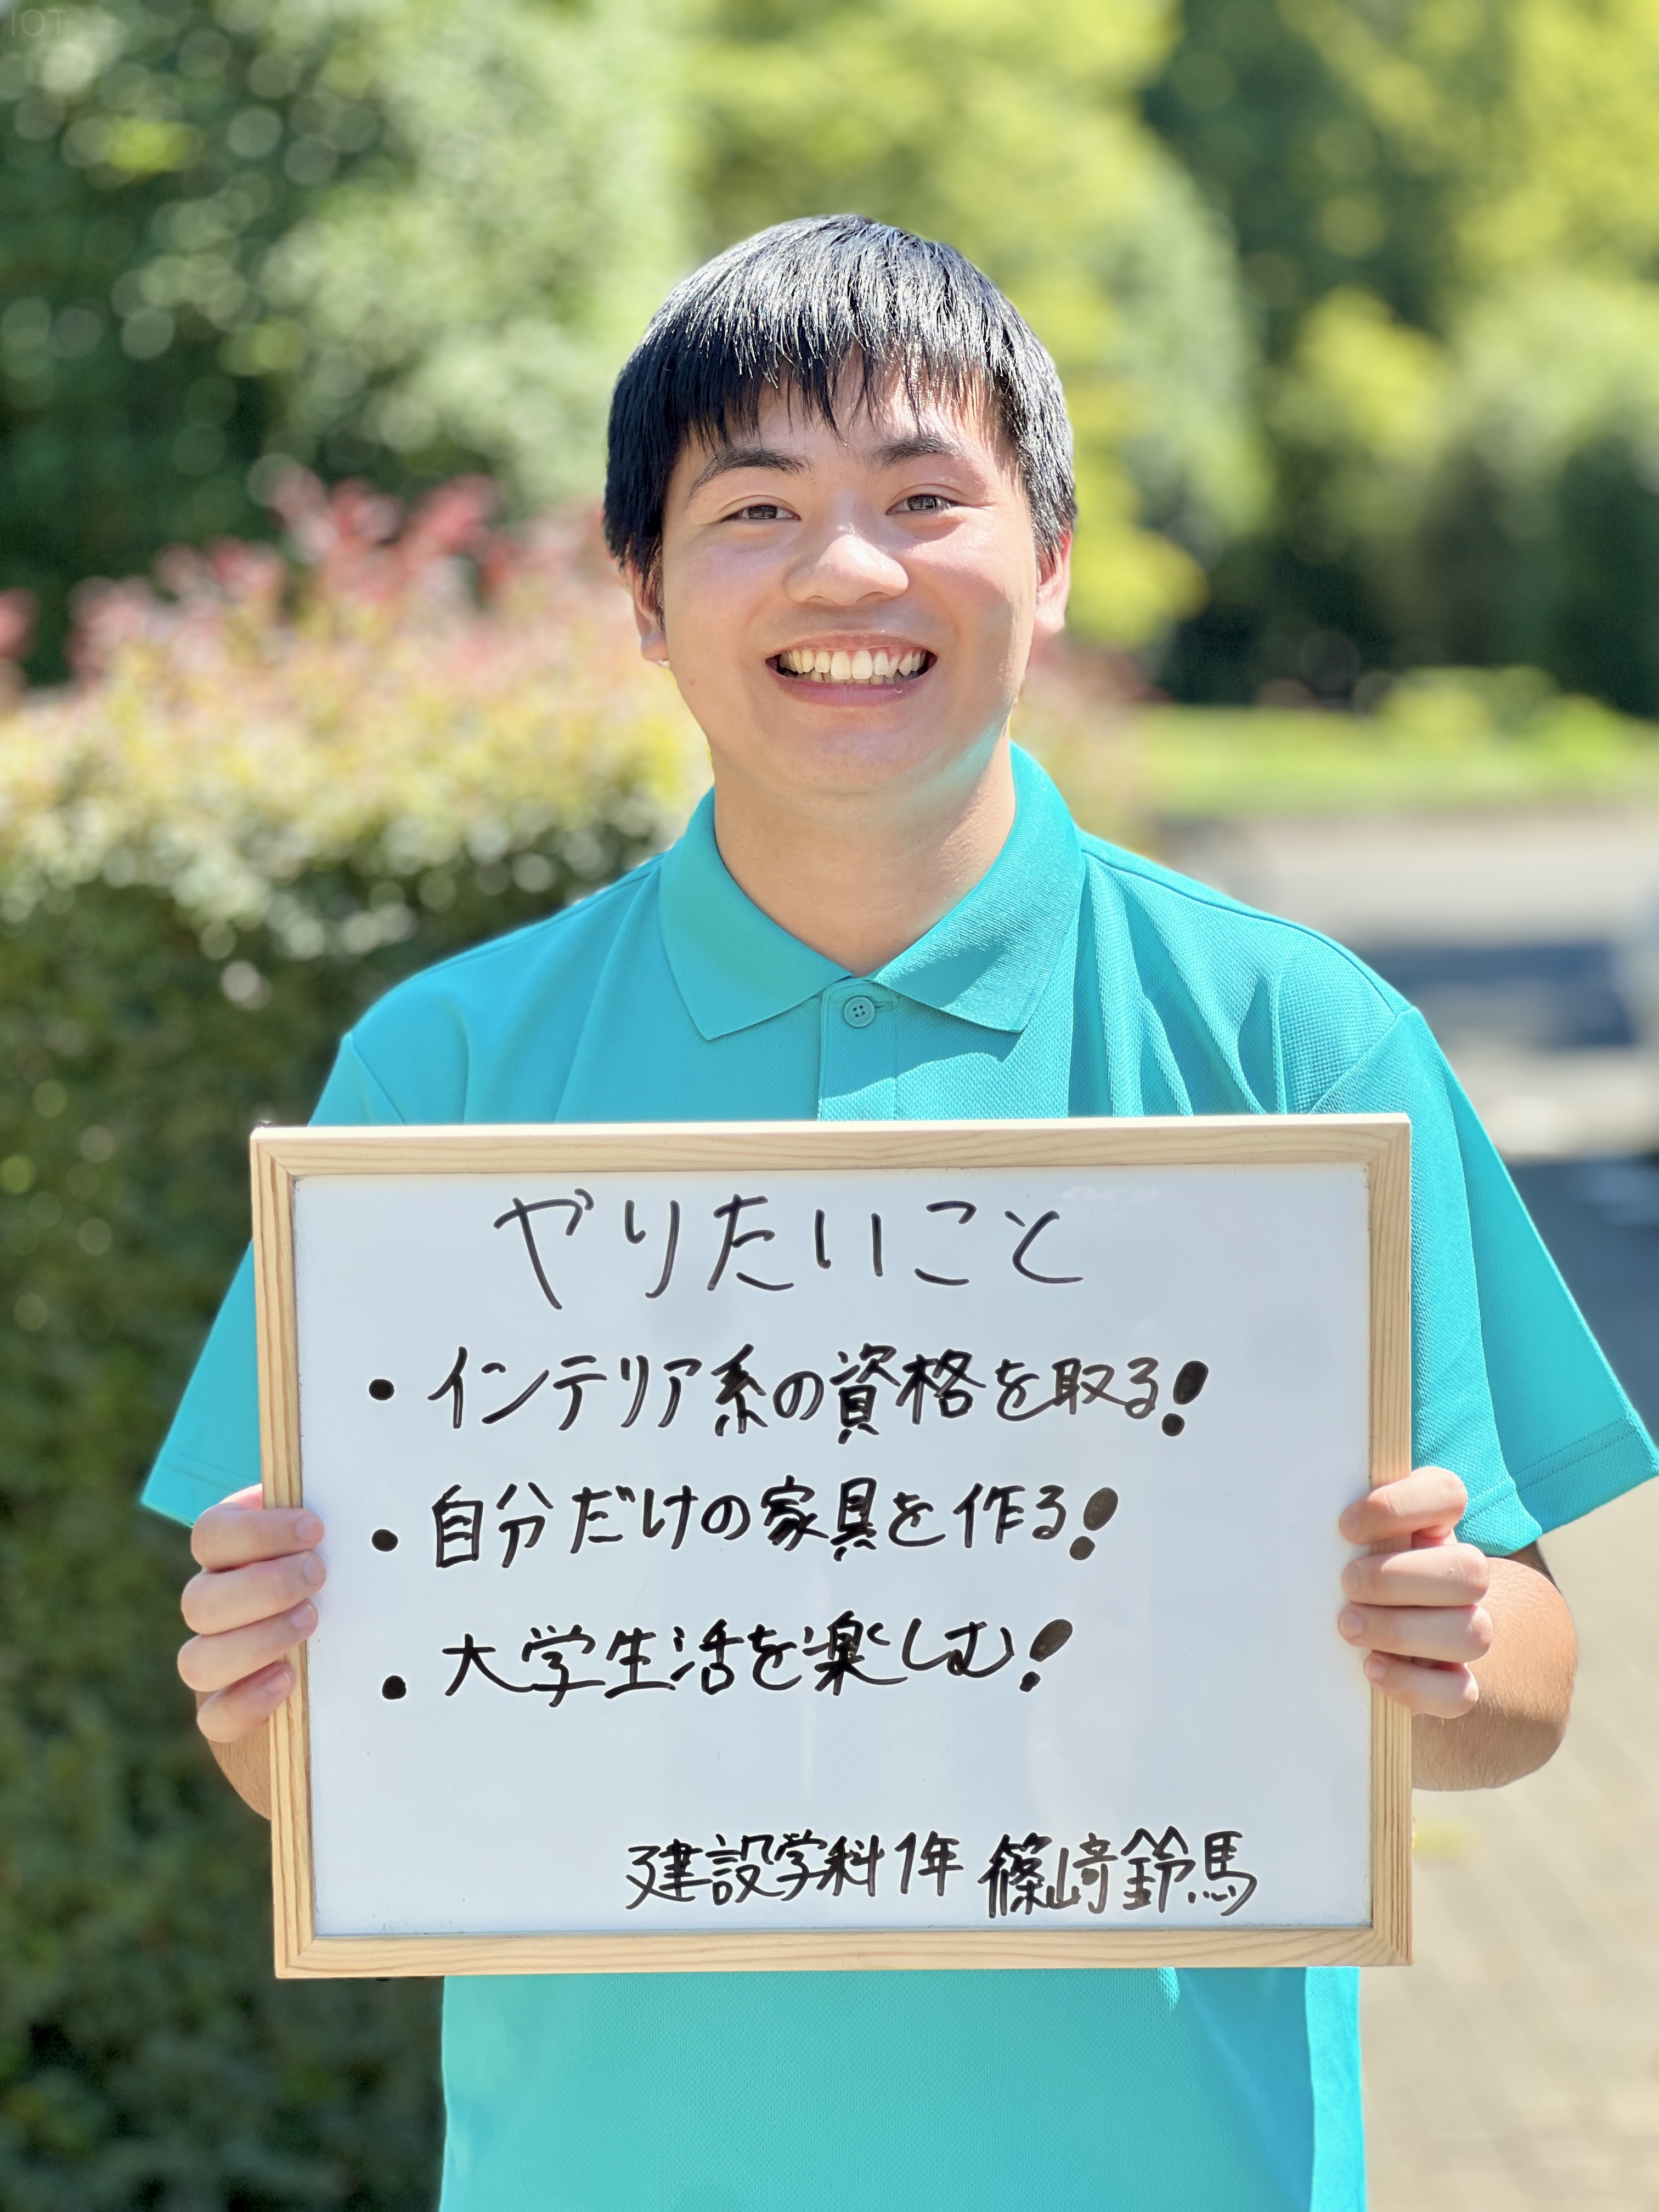 IOT
やりたいこと
・インテリア系の資格を取る!
・自分だけの家具を作る!
・大学生活を楽しむ!
建設学科1年 篠﨑鈴馬